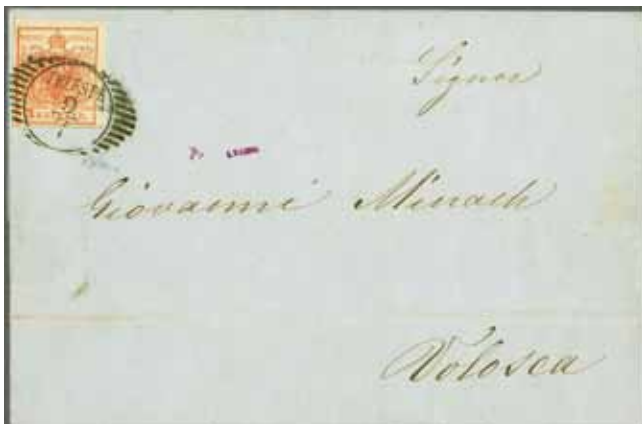 TRIESTE
Signor
Giovanni Minach
Volosca